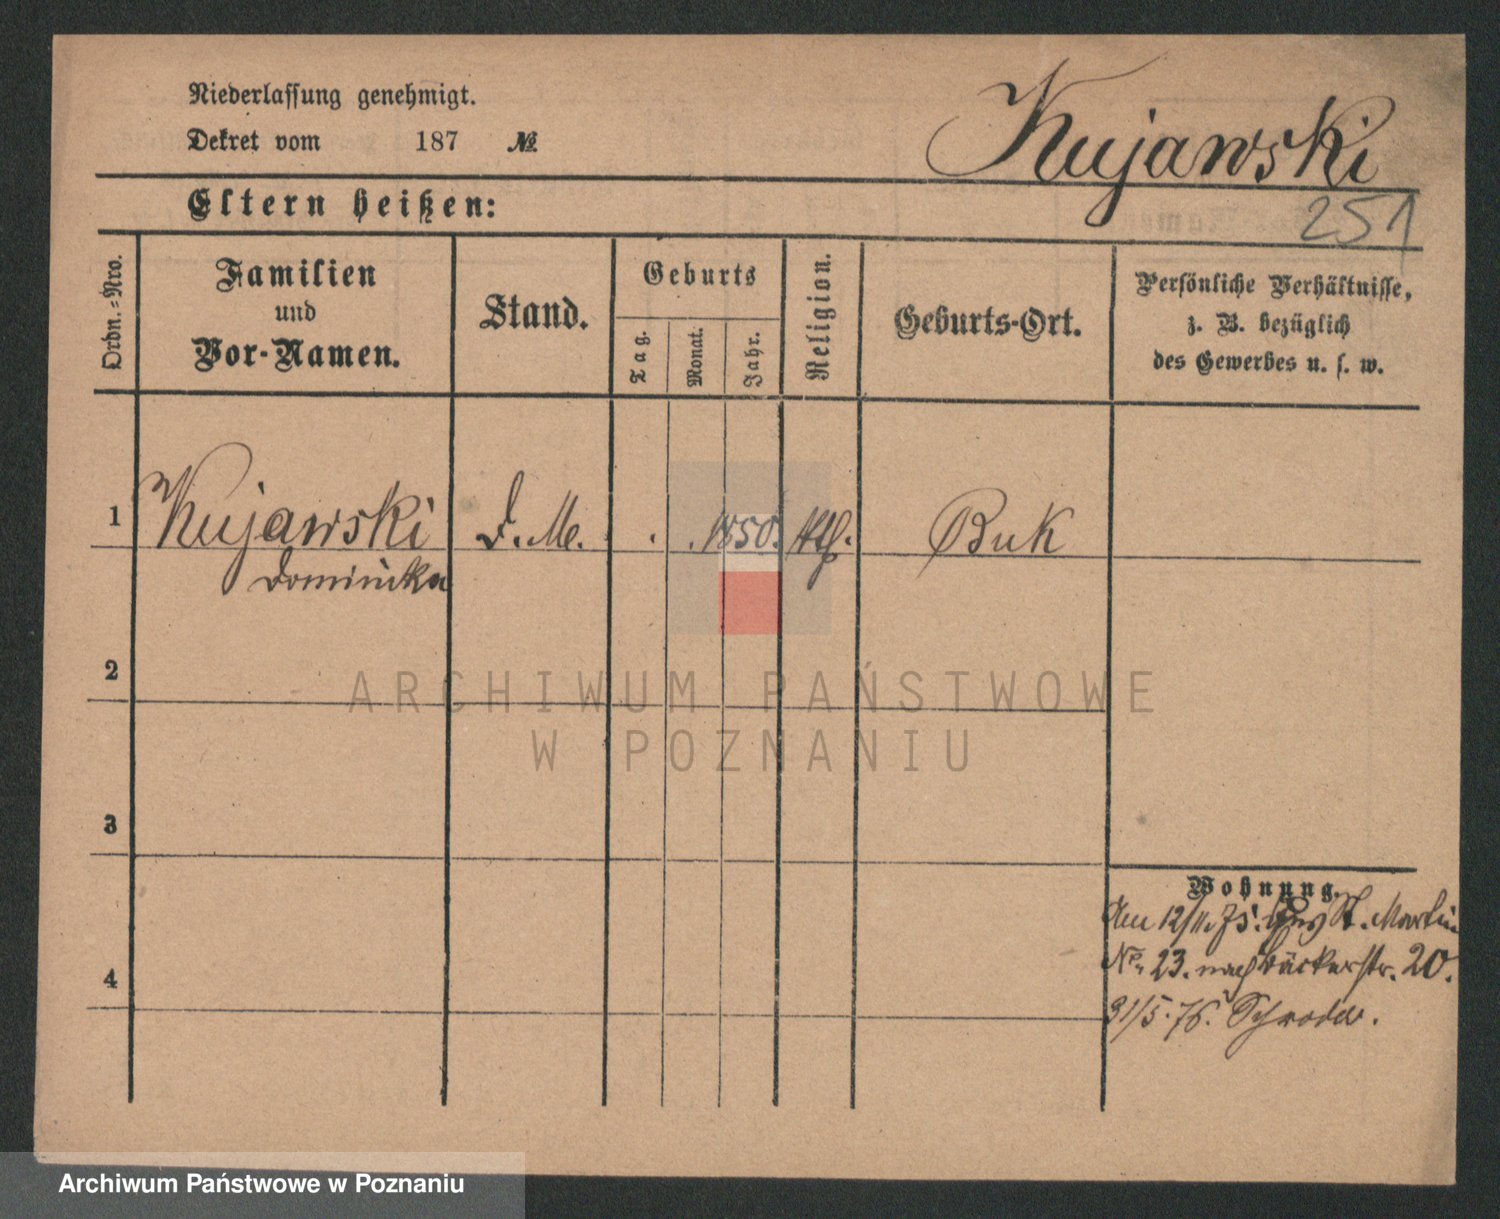 Niederlassung genehmigt.
Dekret vom 187 №
Kujawski
251
Eltern heißen:
Ordn.-Nro.
Familien
und
Vor-Namen.
Stand.
Geburts
Tag.
Monat.
Jahr.
Religion.
Geburts-Ort.
Persönliche Verhältnisse,
z. B. bezüglich
des Gewerbes u. s. w.
1 Kujawski D. M. . . 1850. Kth. Buk
Dominika
2
ARCHIWUM PAŃSTWOWE
W POZNANIU
3
Wohnung.
Am 12/11. 75. St. Martin
No. 23. nach Bäckerstr. 20.
4
31/5. 76. Schroda.
Archiwum Państwowe w Poznaniu